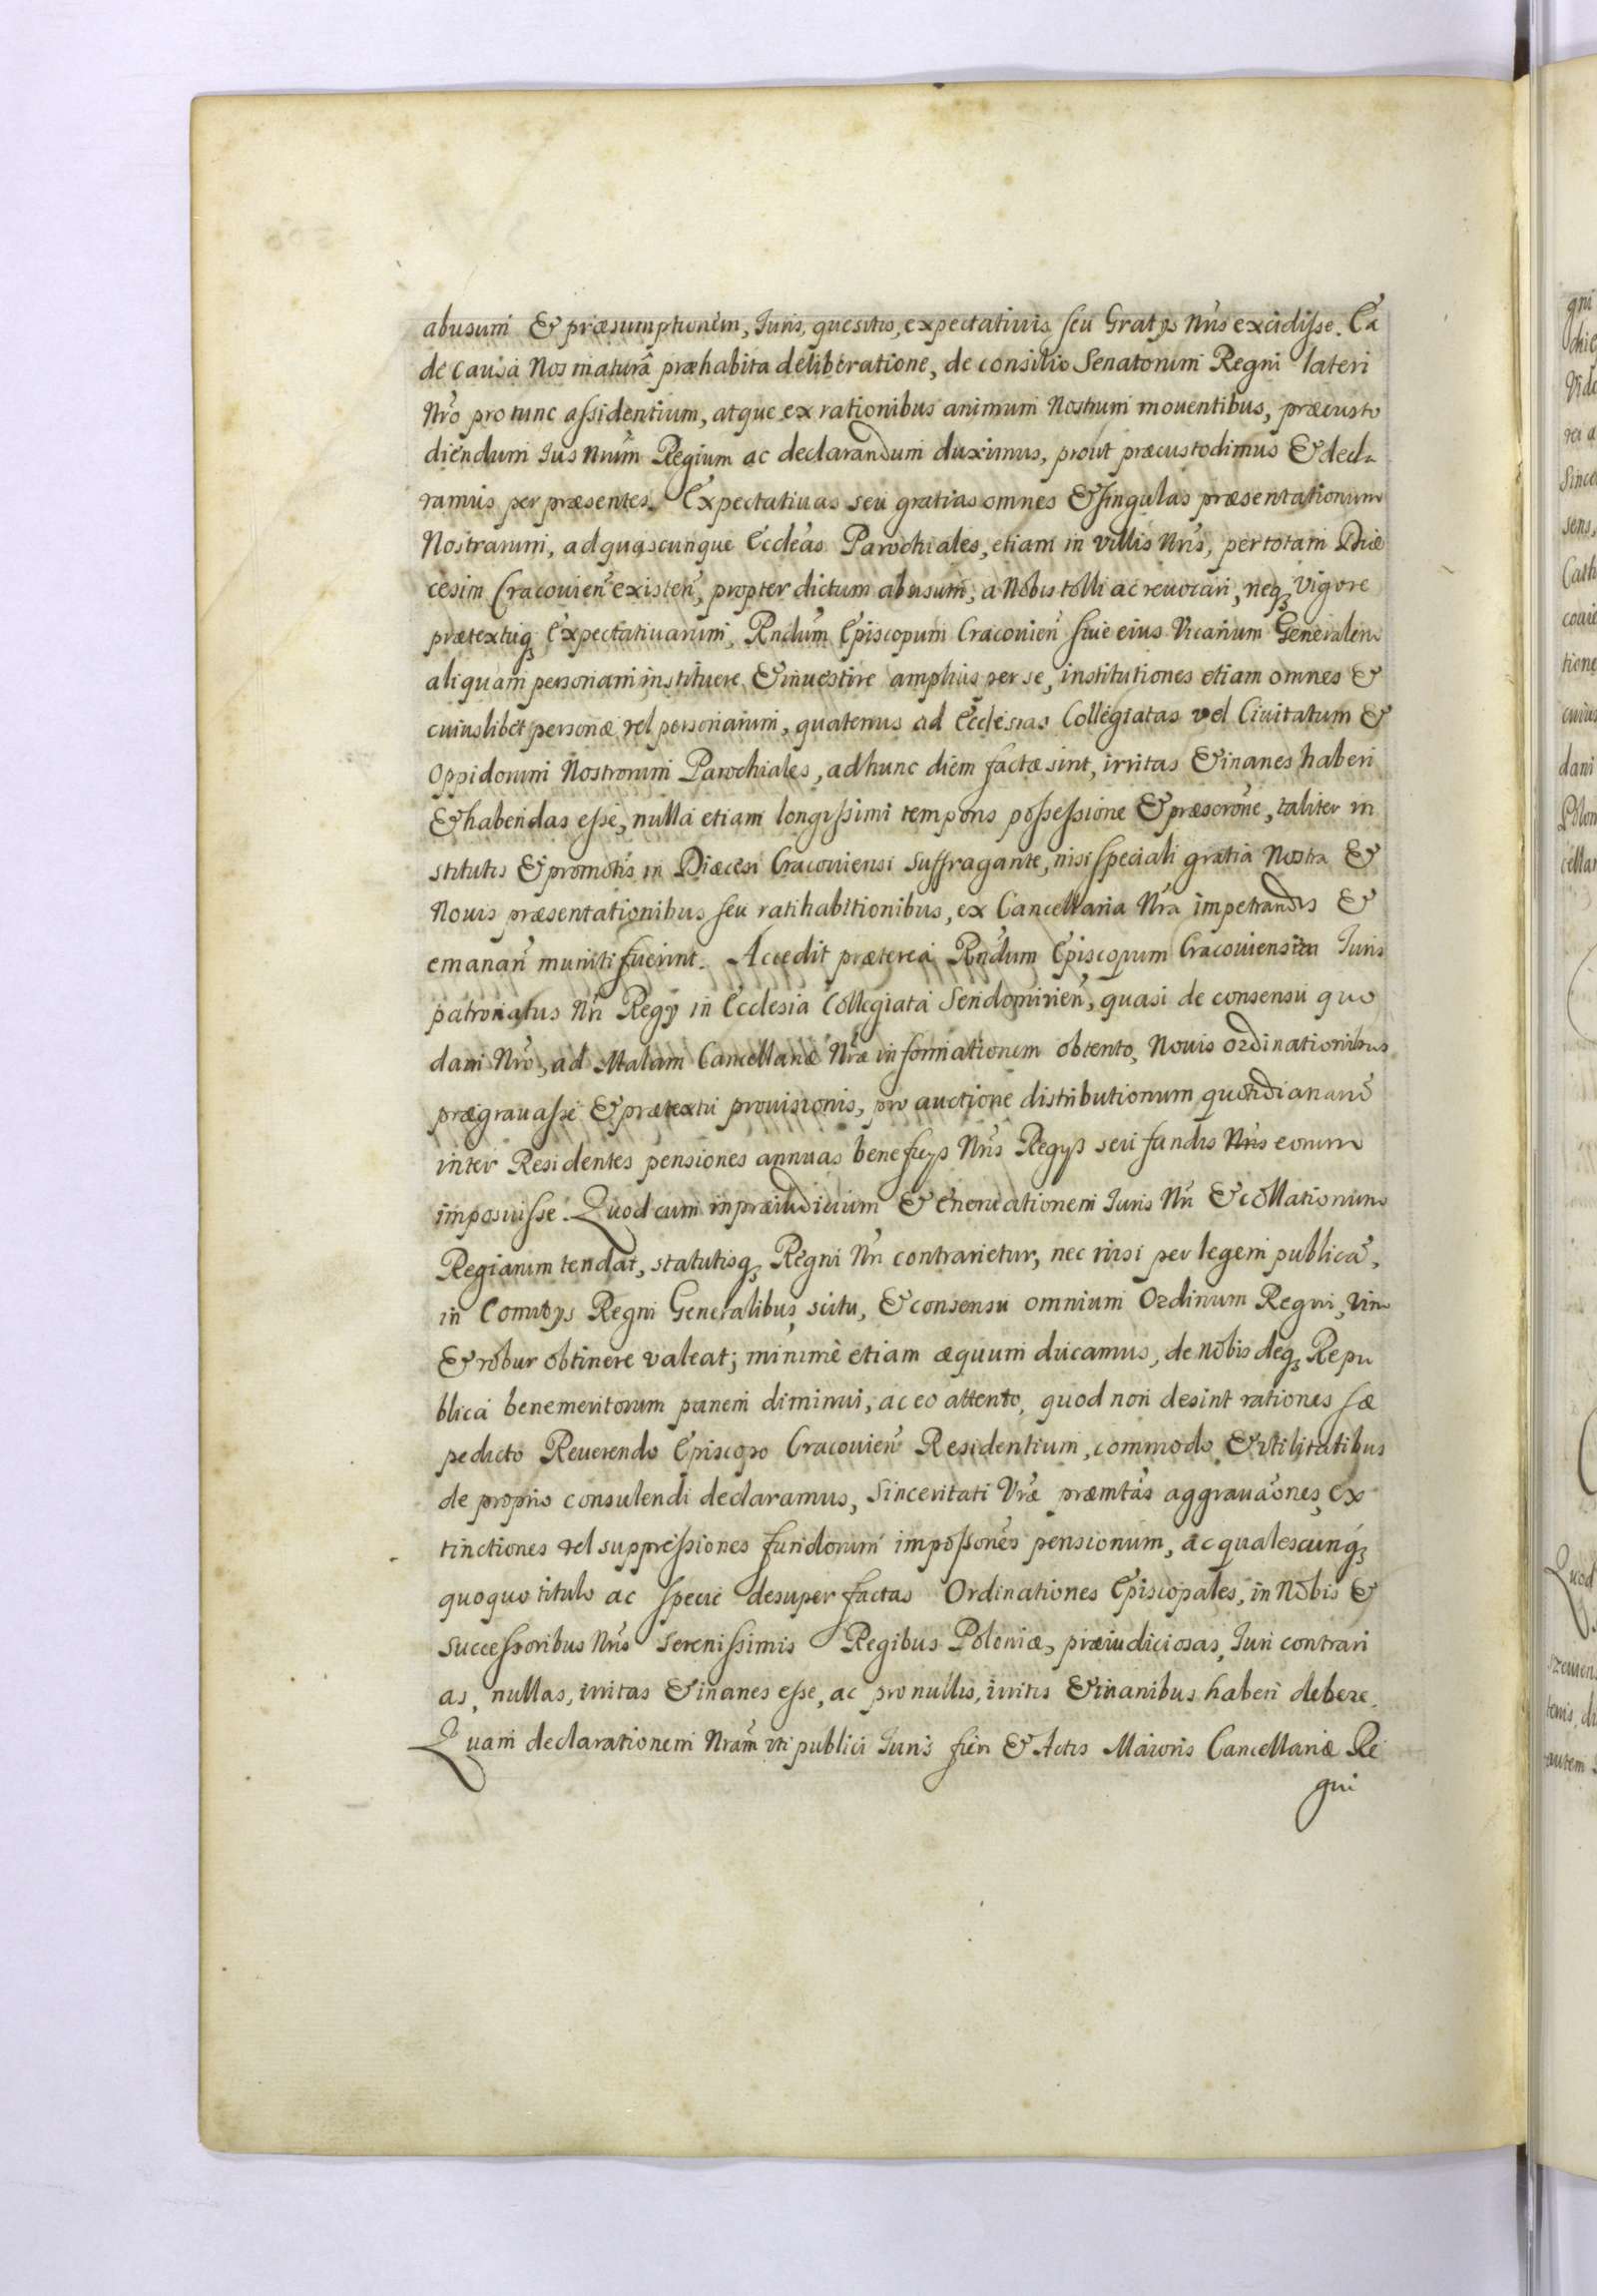 abusum & præsumptionem, Iuris, quesitis, expectatiuis seu Gratijs Nris excidisse. Ea
de causa Nos matura præhabita deliberatione, de consilio Senatorum Regni lateri
Nro pro tunc assidentium, atque ex rationibus animum Nostrum mouentibus, præcusto
diendum Ius Nrum Regium ac declarandum duximus, prout præcustodimus & decla
ramus per præsentes. Expectatiuas seu gratias omnes & singulas præsentationum
Nostrarum, ad quascunque Eccleas Parochiales, etiam in villis Nris, per totam Diæ
cesim Cracouien existen, propter dictum abusum, a Nobis tolli ac reuocari, neq vigore
prætextuq Expectatiuarum, Rndum Episcopum Cracouien siue eius Vicarium Generalem
aliquam personam instituere & inuestire amplius per se, institutiones etiam omnes &
cuiuslibet personæ vel personarum, quatenus ad Ecclesias Collegiatas vel Ciuitatum &
Oppidorum Nostrorum Parochiales, ad hunc diem factæ sint, irritas & inanes haberi
& habendas esse, nulla etiam longissimi temporis possessione & præscrone, taliter in
stitutis & promotis in Diæcesi Cracouiensi suffragante, nisi speciali gratia Nostra &
Nouis præsentationibus seu ratihabitionibus, ex Cancellaria Nra impetrandis &
emanan muniti fuerint. Accedit præterea Rndum Episcopum Cracouiensem Iuris
patronatus Nri Regij in Ecclesia Collegiata Sendomirien, quasi de consensu quo
dam Nro, ad Malam Cancellariæ Nræ informationem obtento, Nouis ordinationibus
prægrauasse & prætextu prouisionis, pro auctione distributionum quotidianaru
inter Residentes pensiones annuas beneficijs Nris Regijs seu fundis Nris eorum
imposuisse. Quod cum in præiudicium & eneruationem Iuris Nri & collationum
Regiarum tendat, statutisq Regni Nri contrarietur, nec nisi per legem publica,
in Comitijs Regni Generalibus, scitu, & consensu omnium Ordinum Regni, vim
& robur obtinere valeat; minimè etiam æquum ducamus, de nobis deq Repu
blica benemeritorum panem diminui, ac eo attento, quod non desint rationes sæ
pedicto Reuerendo Episcopo Cracouien Residentium, commodo & vtilitatibus
de proprio consulendi declaramus, Sinceritati Vræ præmtas aggrauaones, ex
tinctiones vel suppressiones fundorum impossones pensionum, ac qualescunq
quoquo titulo ac specie desuper factas Ordinationes Episcopales, in Nobis &
successoribus Nris Serenissimis Regibus Poloniæ, præiudiciosas, Iuri contrari
as, nullas, irritas & inanes esse, ac pro nullis, irritis & inanibus haberi debere.
Quam declarationem Nram vti publici Iuris fieri & Actis Maioris Cancellariæ Re
gni